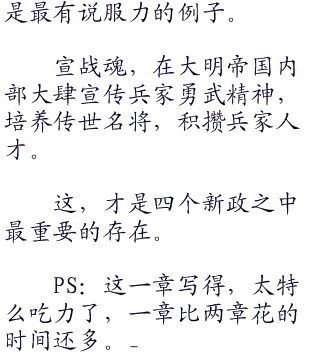 是最有说服力的例子。
宣战魂，在大明帝国内
部大肆宣传兵家勇武精神，
培养传世名将，积攒兵家人
才。
这，才是四个新政之中
最重要的存在。
PS：这一章写得，太特
么吃力了，一章比两章花的
时间还多。_